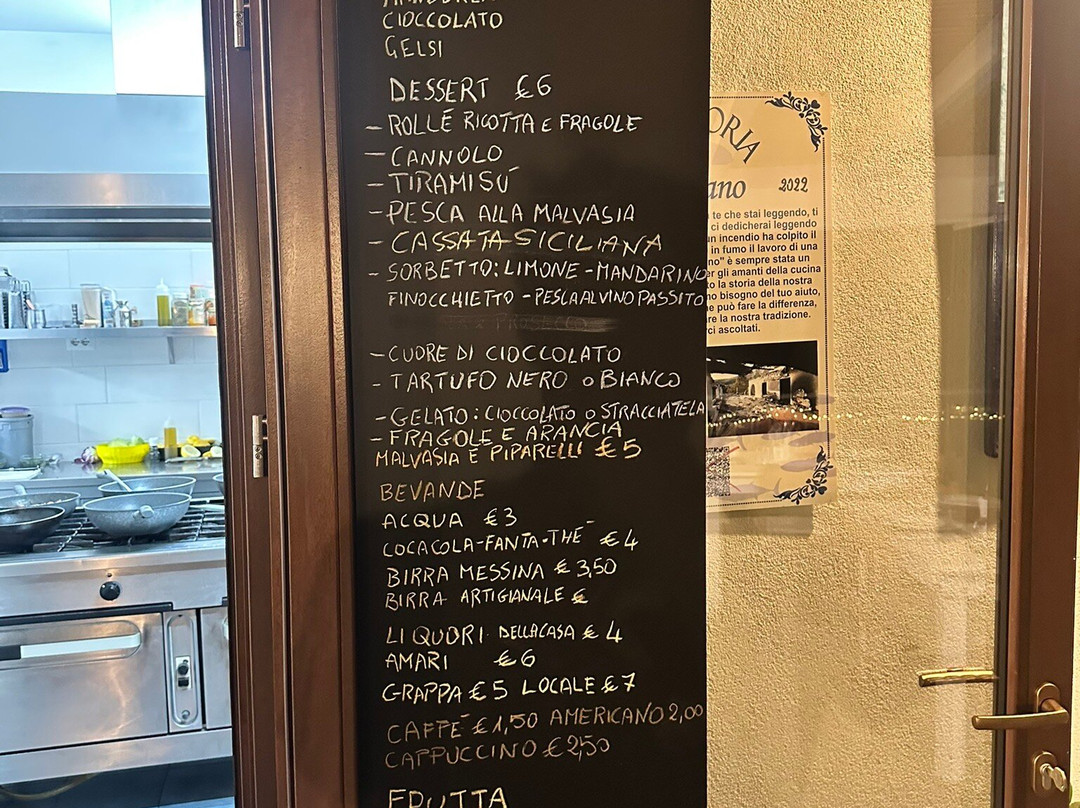 CIOCCOLATO
GELSI
DESSERT €6
- ROLLÉ RICOTTA E FRAGOLE
- CANNOLO
- TIRAMISÚ
- PESCA ALLA MALVASIA
- CASSATA SICILIANA
- SORBETTO: LIMONE - MANDARINO
FINOCCHIETTO - PESCA AL VINO PASSITO
PROSECCO
- CUORE DI CIOCCOLATO
- TARTUFO NERO o BIANCO
- GELATO: CIOCCOLATO o STRACCIATELA
- FRAGOLE E ARANCIA
MALVASIA E PIPARELLI €5
BEVANDE
ACQUA €3
COCACOLA-FANTA-THE €4
BIRRA MESSINA €3,50
BIRRA ARTIGIANALE €
LIQUORI DELLACASA €4
AMARI €6
GRAPPA €5 LOCALE €7
CAFFÉ €1,50 AMERICANO 2,00
CAPPUCCINO €2,50
FRUTTA
ORIA
ano 2022
te che stai leggendo, ti
ci dedicherai leggendo
un incendio ha colpito il
in fumo il lavoro di una
no" è sempre stata un
er gli amanti della cucina
to la storia della nostra
no bisogno del tuo aiuto,
ne può fare la differenza,
re la nostra tradizione.
rci ascoltati.